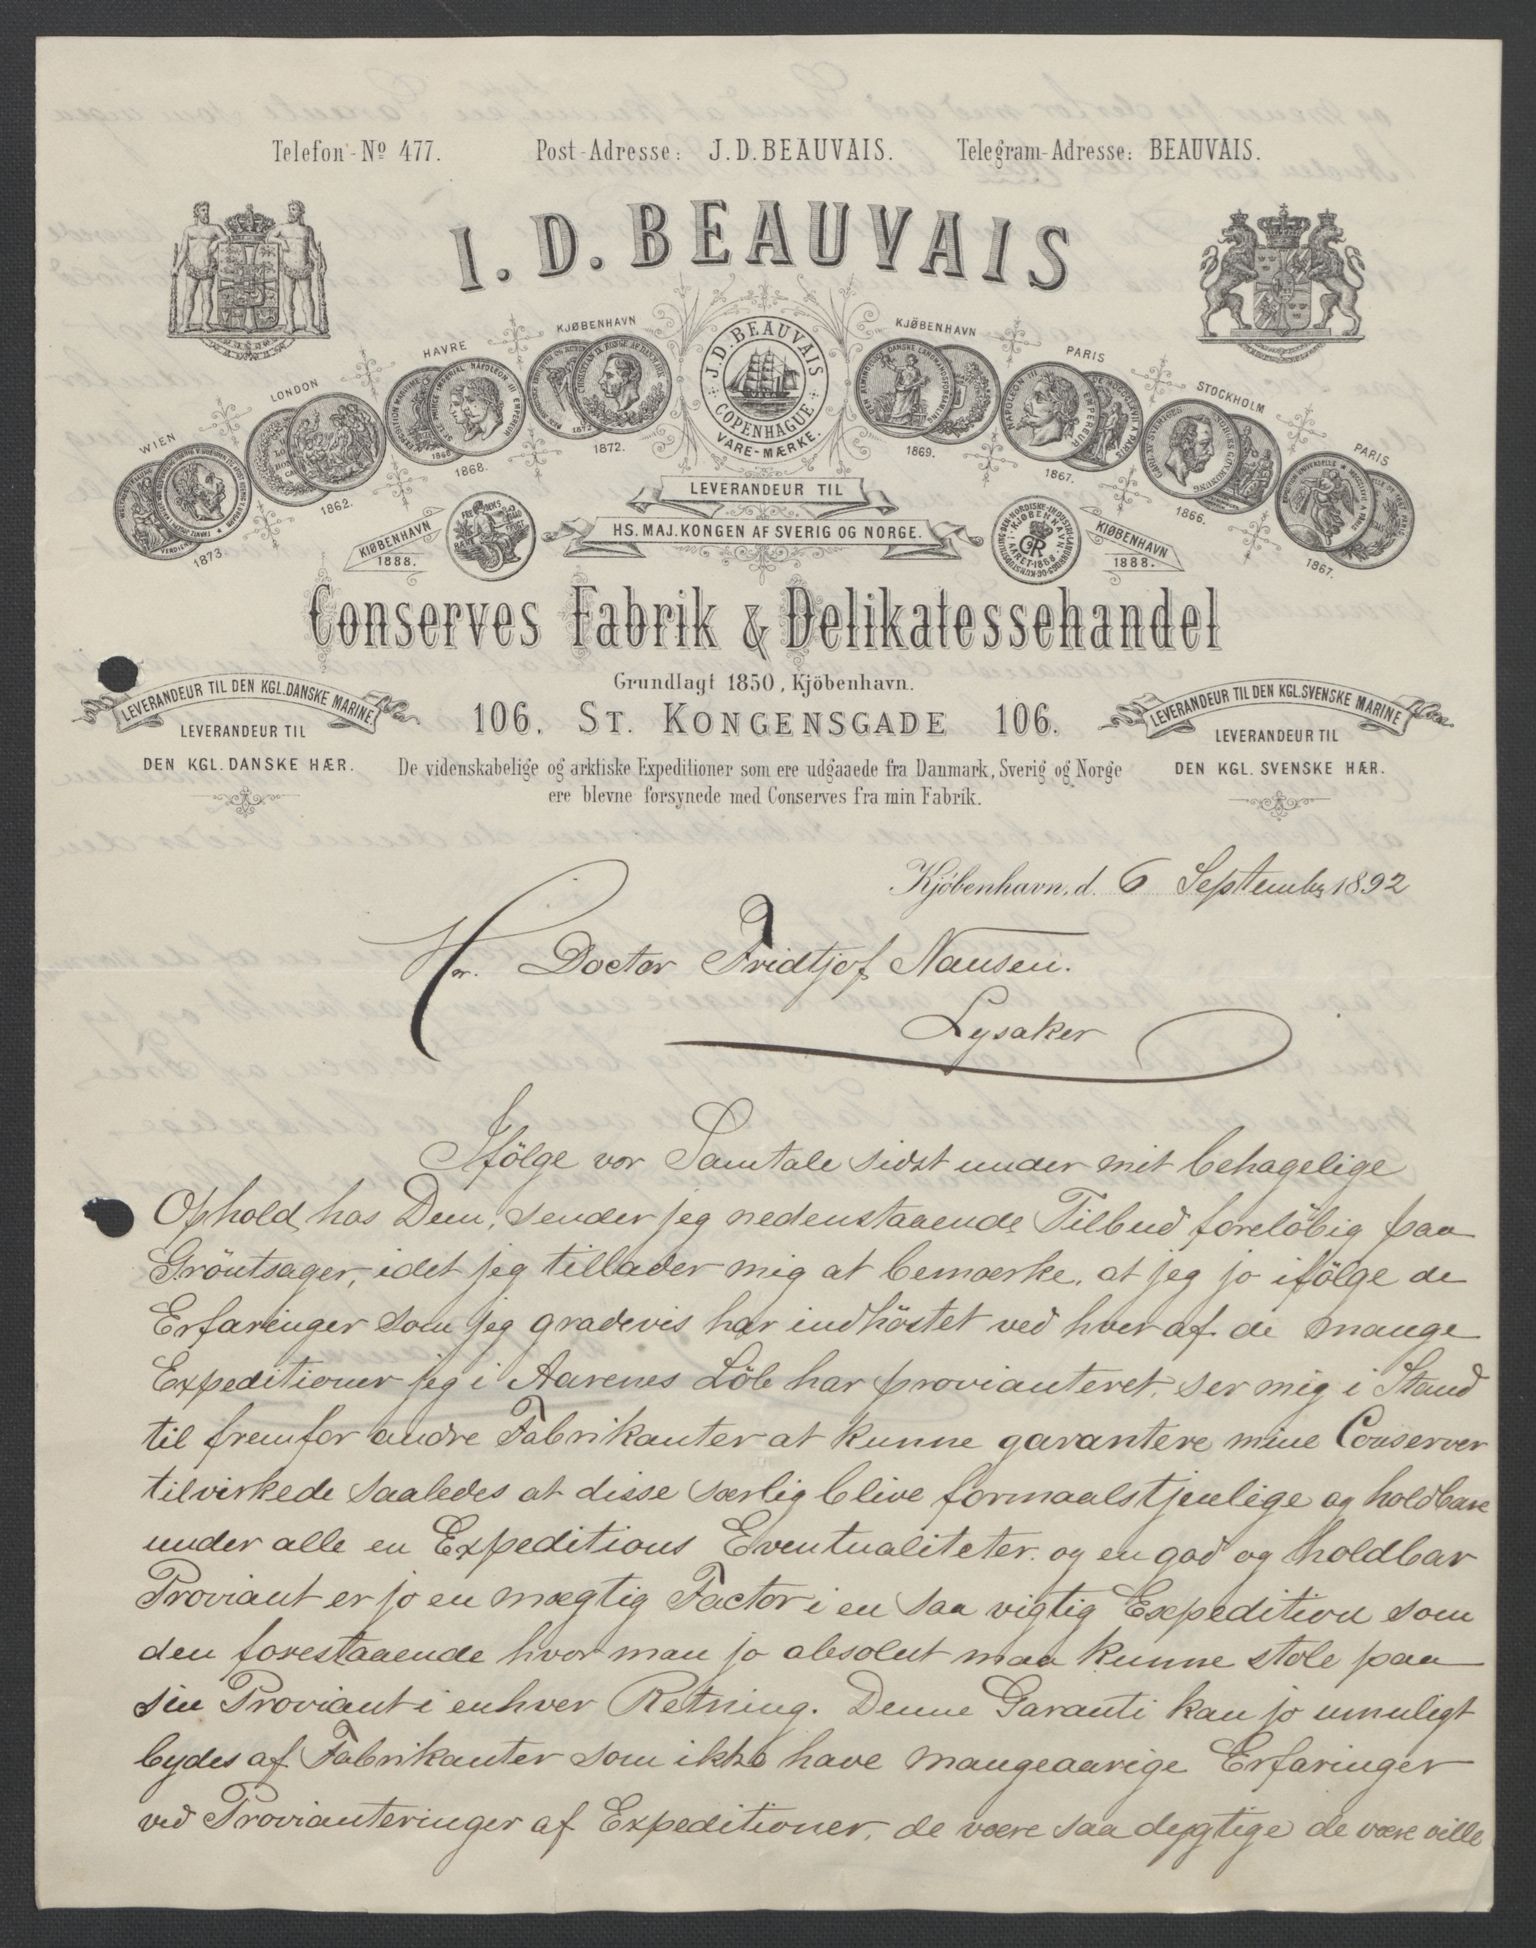 Telefon-No 477. Post-Adresse: J.D. BEAUVAIS. Telegram-Adresse: BEAUVAIS.
I. D. BEAUVAIS
WIEN
1873.
LONDON
1862.
HAVRE
1868.
KJØBENHAVN
1872.
J. D. BEAUVAIS
COPENHAGUE
VARE-MÆRKE.
KJØBENHAVN
1869.
PARIS
1867.
STOCKHOLM
1866.
PARIS
1867.
KIØBENHAVN
1888.
LEVERANDEUR TIL
HS. MAJ. KONGEN AF SVERIG OG NORGE.
KIØBENHAVN
1888.
Conserves Fabrik & Delikatessehandel
Grundlagt 1850, Kjöbenhavn.
LEVERANDEUR TIL DEN KGL. DANSKE MARINE
LEVERANDEUR TIL
DEN KGL. DANSKE HÆR.
106. ST. KONGENSGADE 106.
LEVERANDEUR TIL DEN KGL. SVENSKE MARINE
LEVERANDEUR TIL
DEN KGL. SVENSKE HÆR.
De videnskabelige og arktiske Expeditioner som ere udgaaede fra Danmark, Sverig og Norge
ere blevne forsynede med Conserves fra min Fabrik.
Kjöbenhavn, d. 6 September 1892
Hr. Doctor Fridtjof Nansen.
Lysaker
Ifölge vor Samtale sidst under mit behagelige
Ophold hos Dem, sender jeg nedenstaaende Tilbud foreløbig paa
Gröntsager, idet jeg tillader mig at bemærke, at jeg jo ifölge de
Erfaringer som jeg gradevis har indhöstet ved hver af de mange
Expeditioner jeg i Aarenes Löb har provianteret, ser mig i Stand
til fremfor andre Fabrikanter at kunne garantere mine Conserver
tilvirkede saaledes at disse særlig blive formaalstjenlige og holdbare
under alle en Expeditions Eventualiteter. og en god og holdbar
Proviant er jo en mægtig Factor i en saa vigtig Expedition som
den forestaaende hvor man jo absolut maa kunne stole paa
sin Proviant i enhver Retning. Denne Garanti kan jo umuligt
bydes af Fabrikanter som ikke have mangeaarige Erfaringer
ved Provianteringer af Expeditioner, de være saa dygtige de være ville